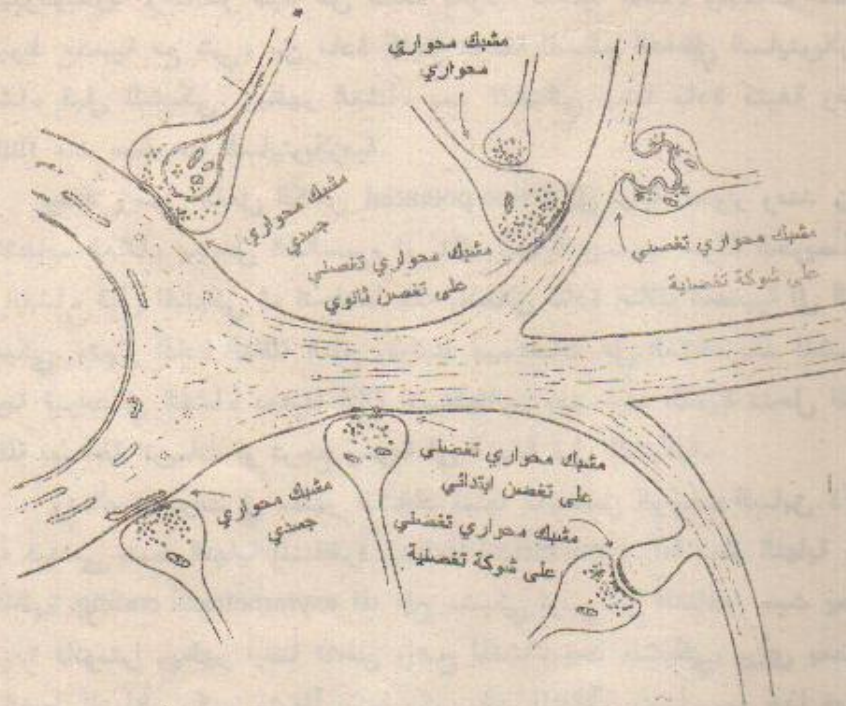 مشبك محواري
محواري
مشبك محواري
جسدي
مشبك محواري تغصني
على تغصن ثانوي
مشبك محواري تغصني
على شوكة تغصناية
مشبك محواري تغصني
على تغصن ابتدائي
مشبك محواري تغصني
على شوكة تغصلية
مشبك محواري
جسدي